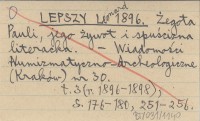 LEPSZY Leonard 1896. Żegota
Pauli, jego żywot i spuścizna
literacka. - Wiadomości
Numizmatyczno-Archeologiczne
(Kraków) nr 30.
t. 3 (r. 1896-1898),
s. 176-181, 251-256.